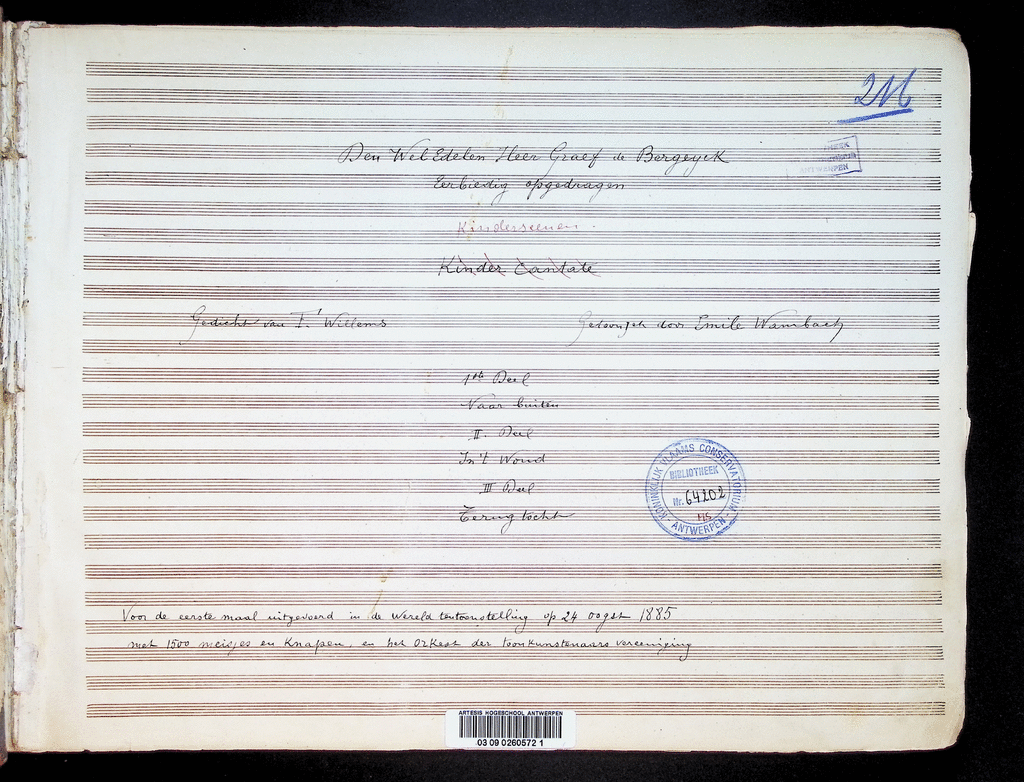 216
THEEK
ANTWERPEN
Den Wel Edelen Heer Graef de Bergeyck
Eerbiedig opgedragen
Kinderscenen.
Kinder Cantate
Gedicht van F. Willems
Getoonzet door Emile Wambach
1ste Deel
Naar buiten
II. Deel
In 't Woud
III Deel
Terugtocht
KONINKLIJK VLAAMS CONSERVATORIUM
BIBLIOTHEEK
Nr. 64202
HS
- ANTWERPEN -
Voor de eerste maal uitgevoerd in de Wereld tentoonstelling op 24 oogst 1885
met 1500 meisjes en Knapen, en het orkest der toonkunstenaars vereeniging
ARTESIS HOGESCHOOL ANTWERPEN
03 09 0260572 1